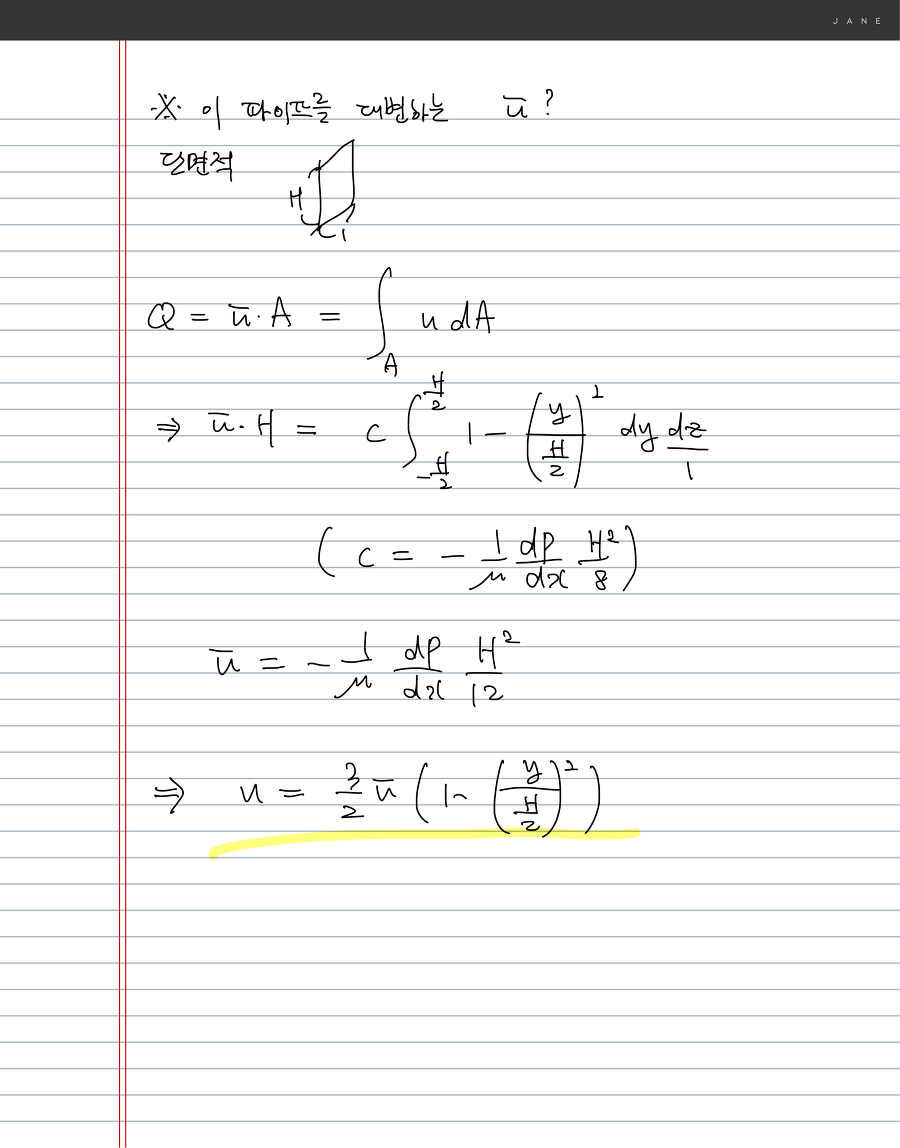 JANE
※ 이 파이프를 대변하는 ū ?
단면적
H
1
Q = ū · A = ∫_A u dA
⇒ ū · H = c ∫_{-H/2}^{H/2} 1 - (y / (H/2))² dy dz/1
( c = - 1/μ dp/dx H²/8 )
ū = - 1/μ dp/dx H²/12
⇒ u = 3/2 ū ( 1 - (y / (H/2))² )